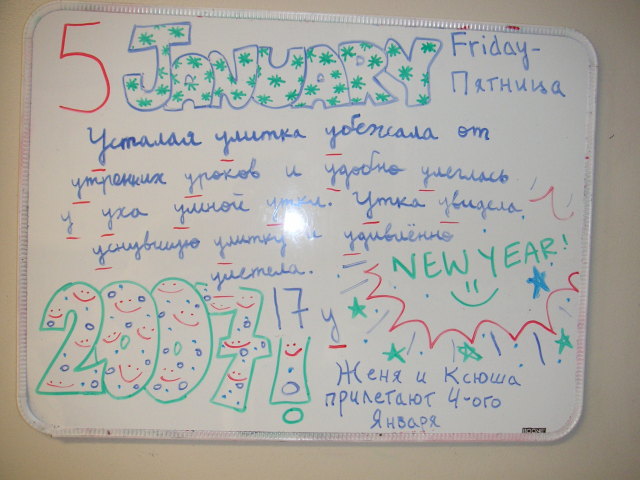 5 JANUARY Friday-
Пятница
Усталая улитка убежала от
утренних уроков и удобно улеглась
у уха умной утки. Утка увидела
уснувшую улитку и удивлённо
улетела.
NEW YEAR!
2007! 17 у
Женя и Ксюша
прилетают 4-ого
Января
BOONE